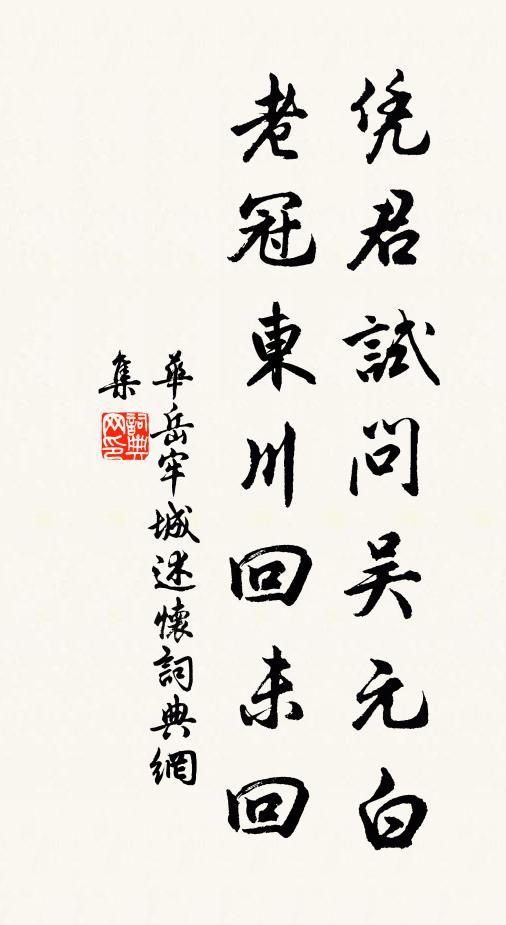 凭君試問吴元白
老冠東川回未回
華岳牢城述懷詞典網
集
詞典
网印